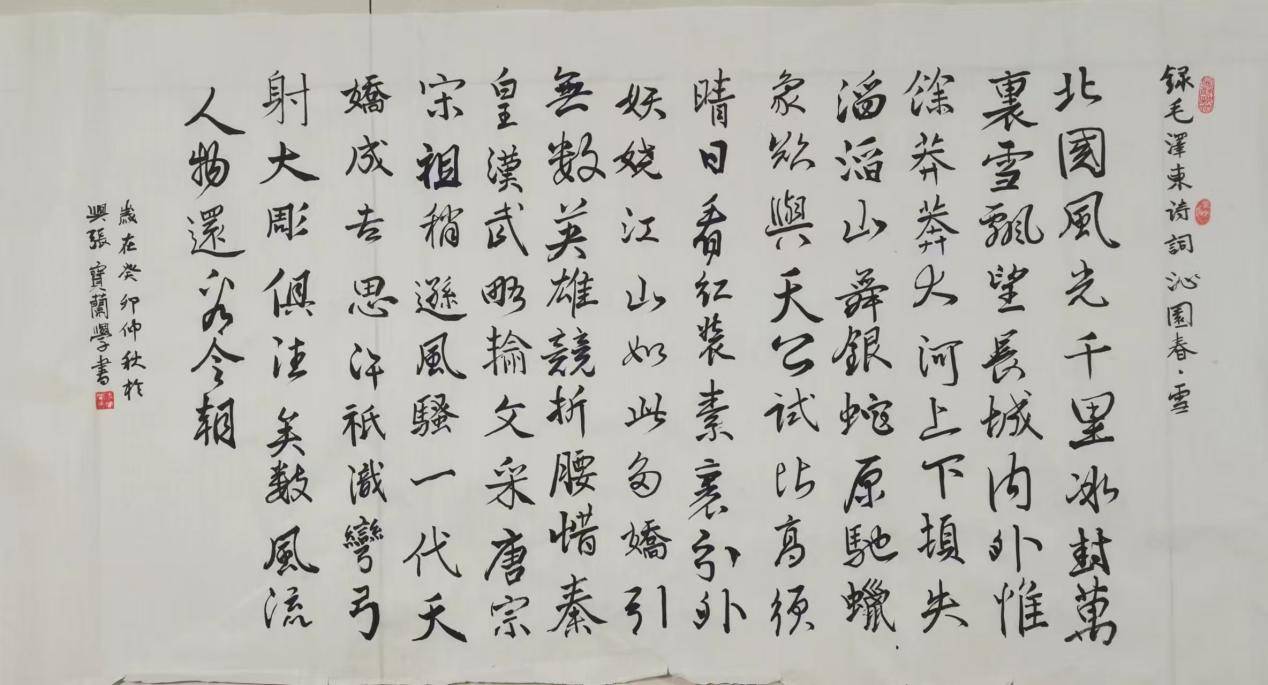 録毛澤東詩詞沁園春·雪
北國風光千里冰封萬
裏雪飄望長城内外惟
餘莽莽大河上下頓失
滔滔山舞銀蛇原馳蠟
象欲與天公試比高須
晴日看紅裝素裹分外
妖嬈江山如此多嬌引
無数英雄競折腰惜秦
皇漢武略輸文采唐宗
宋祖稍遜風騷一代天
嬌成吉思汗祇識彎弓
射大彫俱往矣數風流
人物還看今朝
歲在癸卯仲秋於
張寶蘭學書